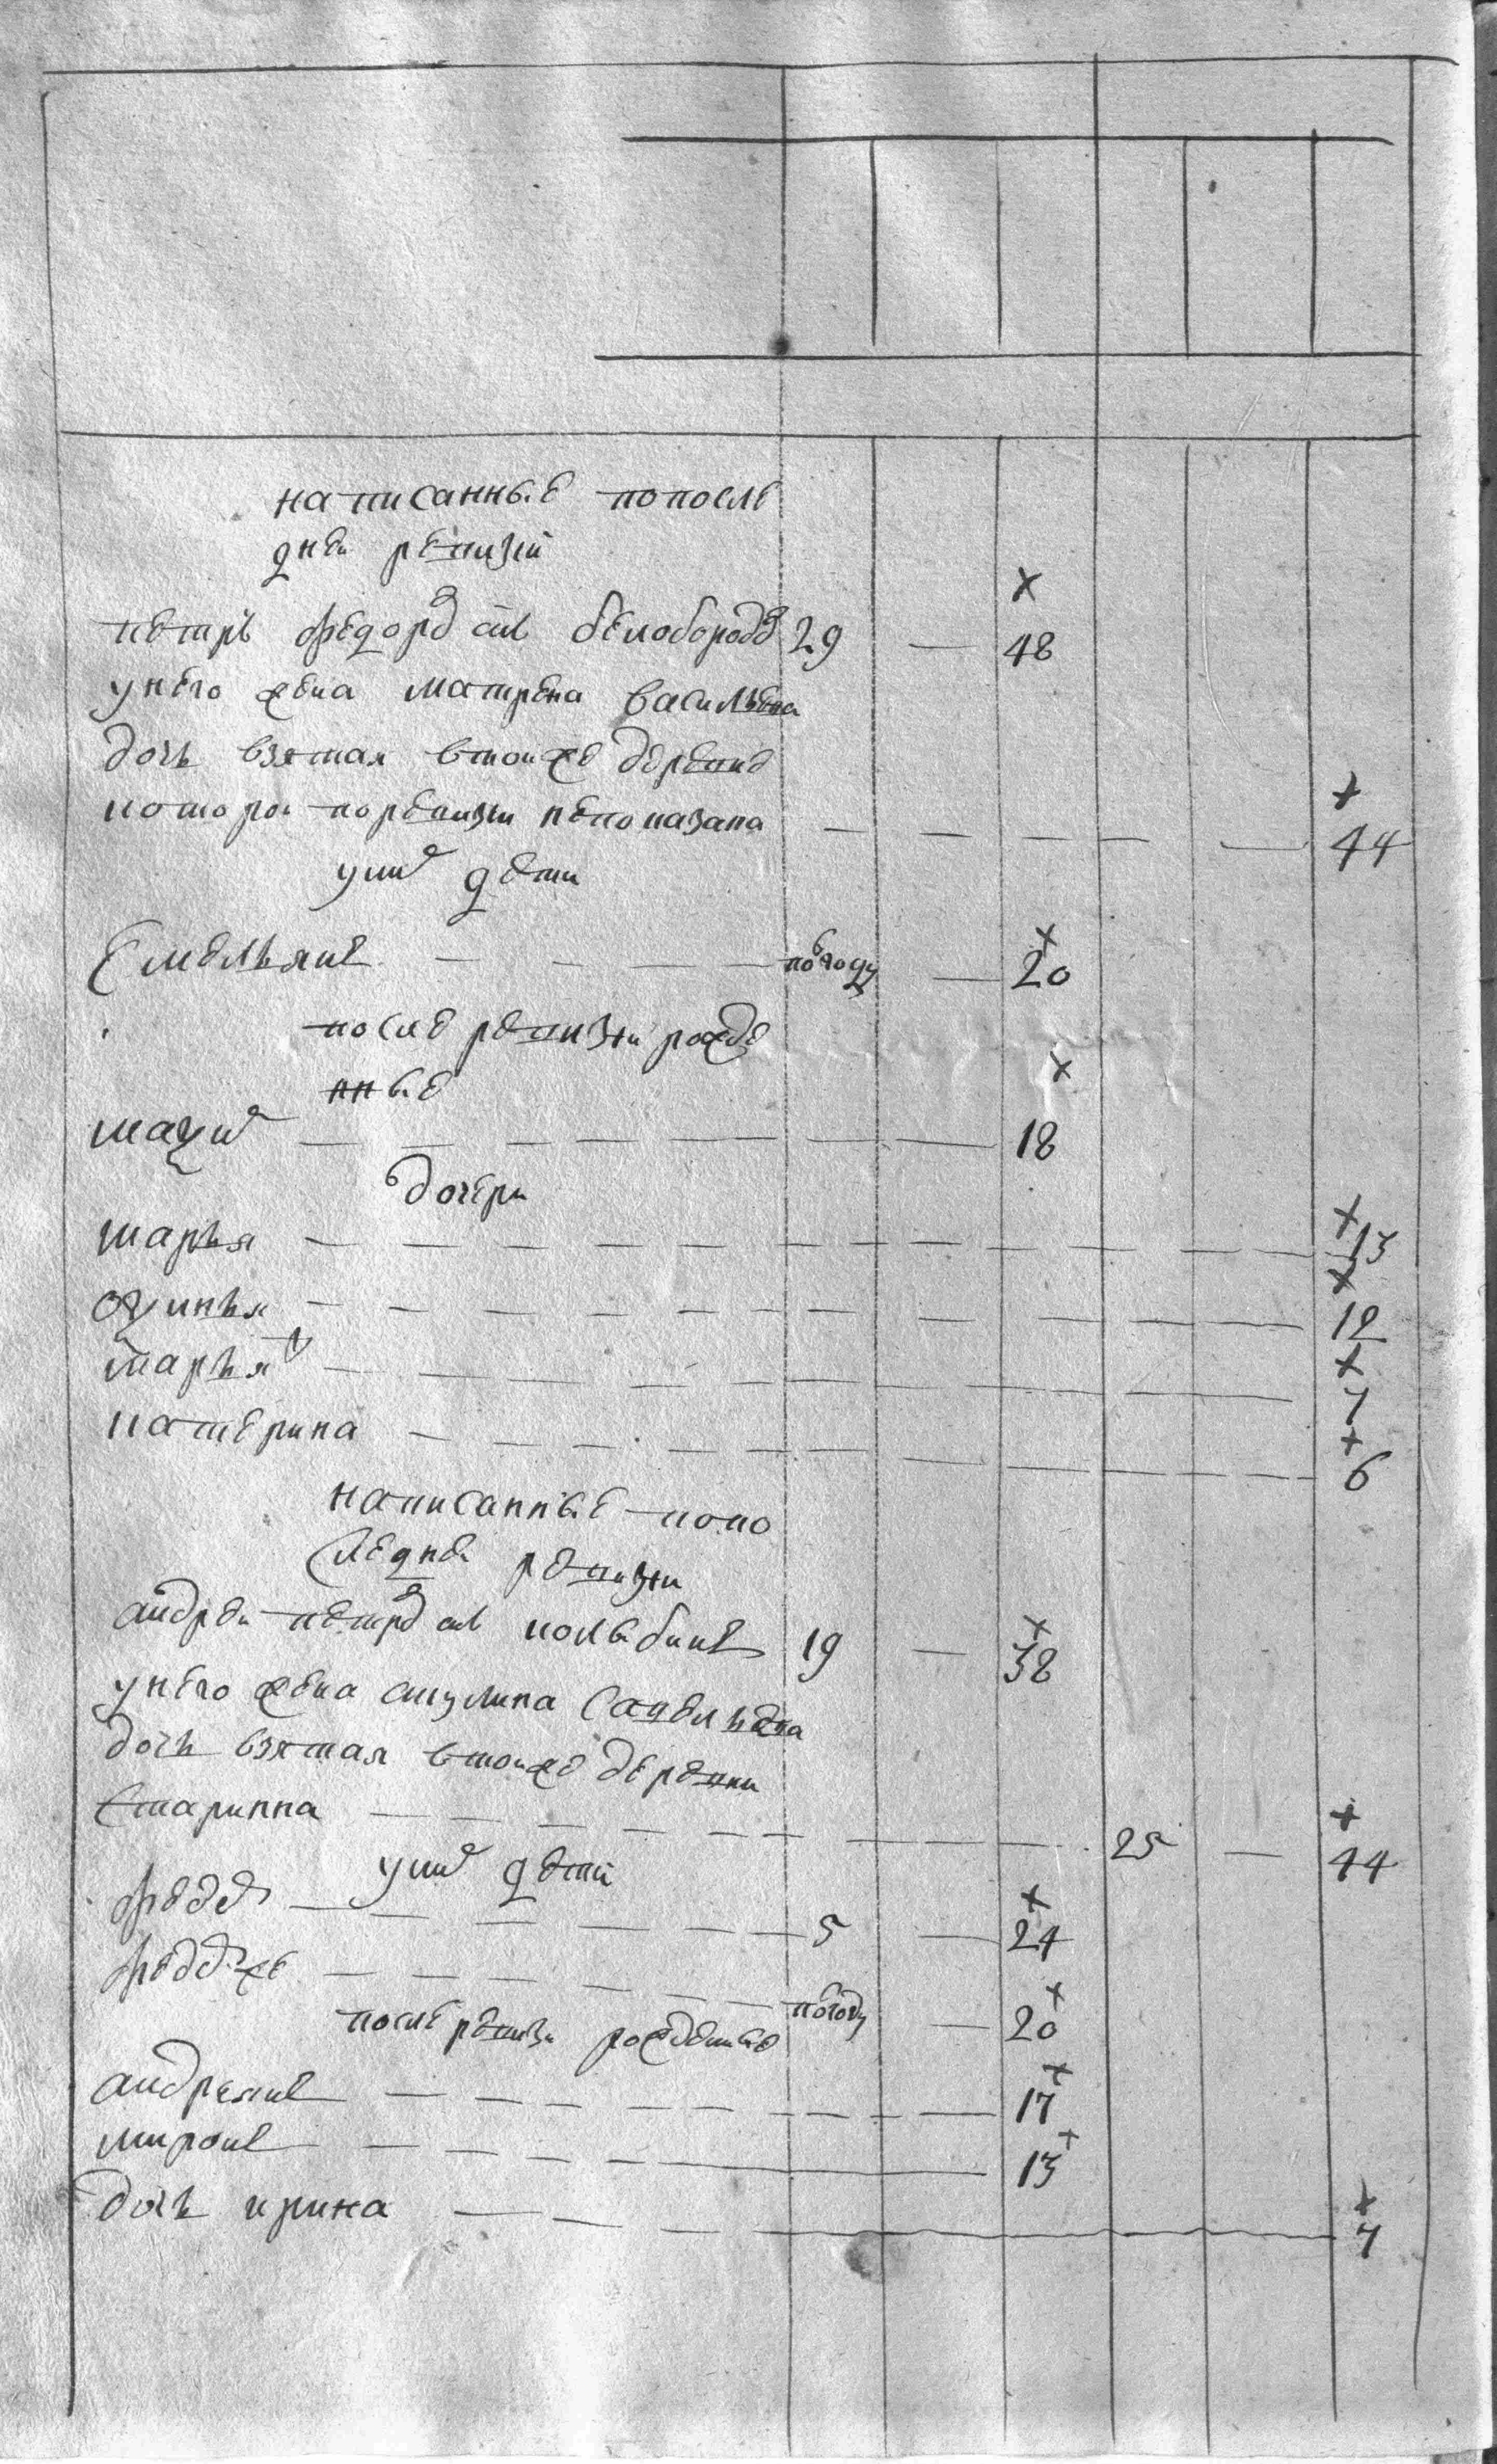 написанные по после
дней ревизии
×
петръ федоровъ снъ белобородов 29 — 48
у него жена матрена васильева
дочь взятая в тои же деревне
×
которои по ревизии не показано — — — — — 44
у них дети
×
Емельянъ — — — — полгоду — 20
после ревизии рожде
нные
×
максим — — — — — — — 18
дочери
×
марья — — — — — — — — — — — 13
×
— — — — — — — — — — 12
×
марья ж — — — — — — — — — 7
×
катерина — — — — — — — — — 6
написанные по по
следней ревизии
×
андреи петров снъ колыбинъ 19 — 38
у него жена акулина савельева
дочь взятая в тои же деревни
×
старинна — — — — — — — — 25 — 44
у них дети
×
федор — — — — — — 5 — 24
×
федор же — — — — — полгоду — 20
после ревизии рожденные
×
андреянъ — — — — — — — 17
×
миронъ — — — — — 13
×
дочь ирина — — — — 7